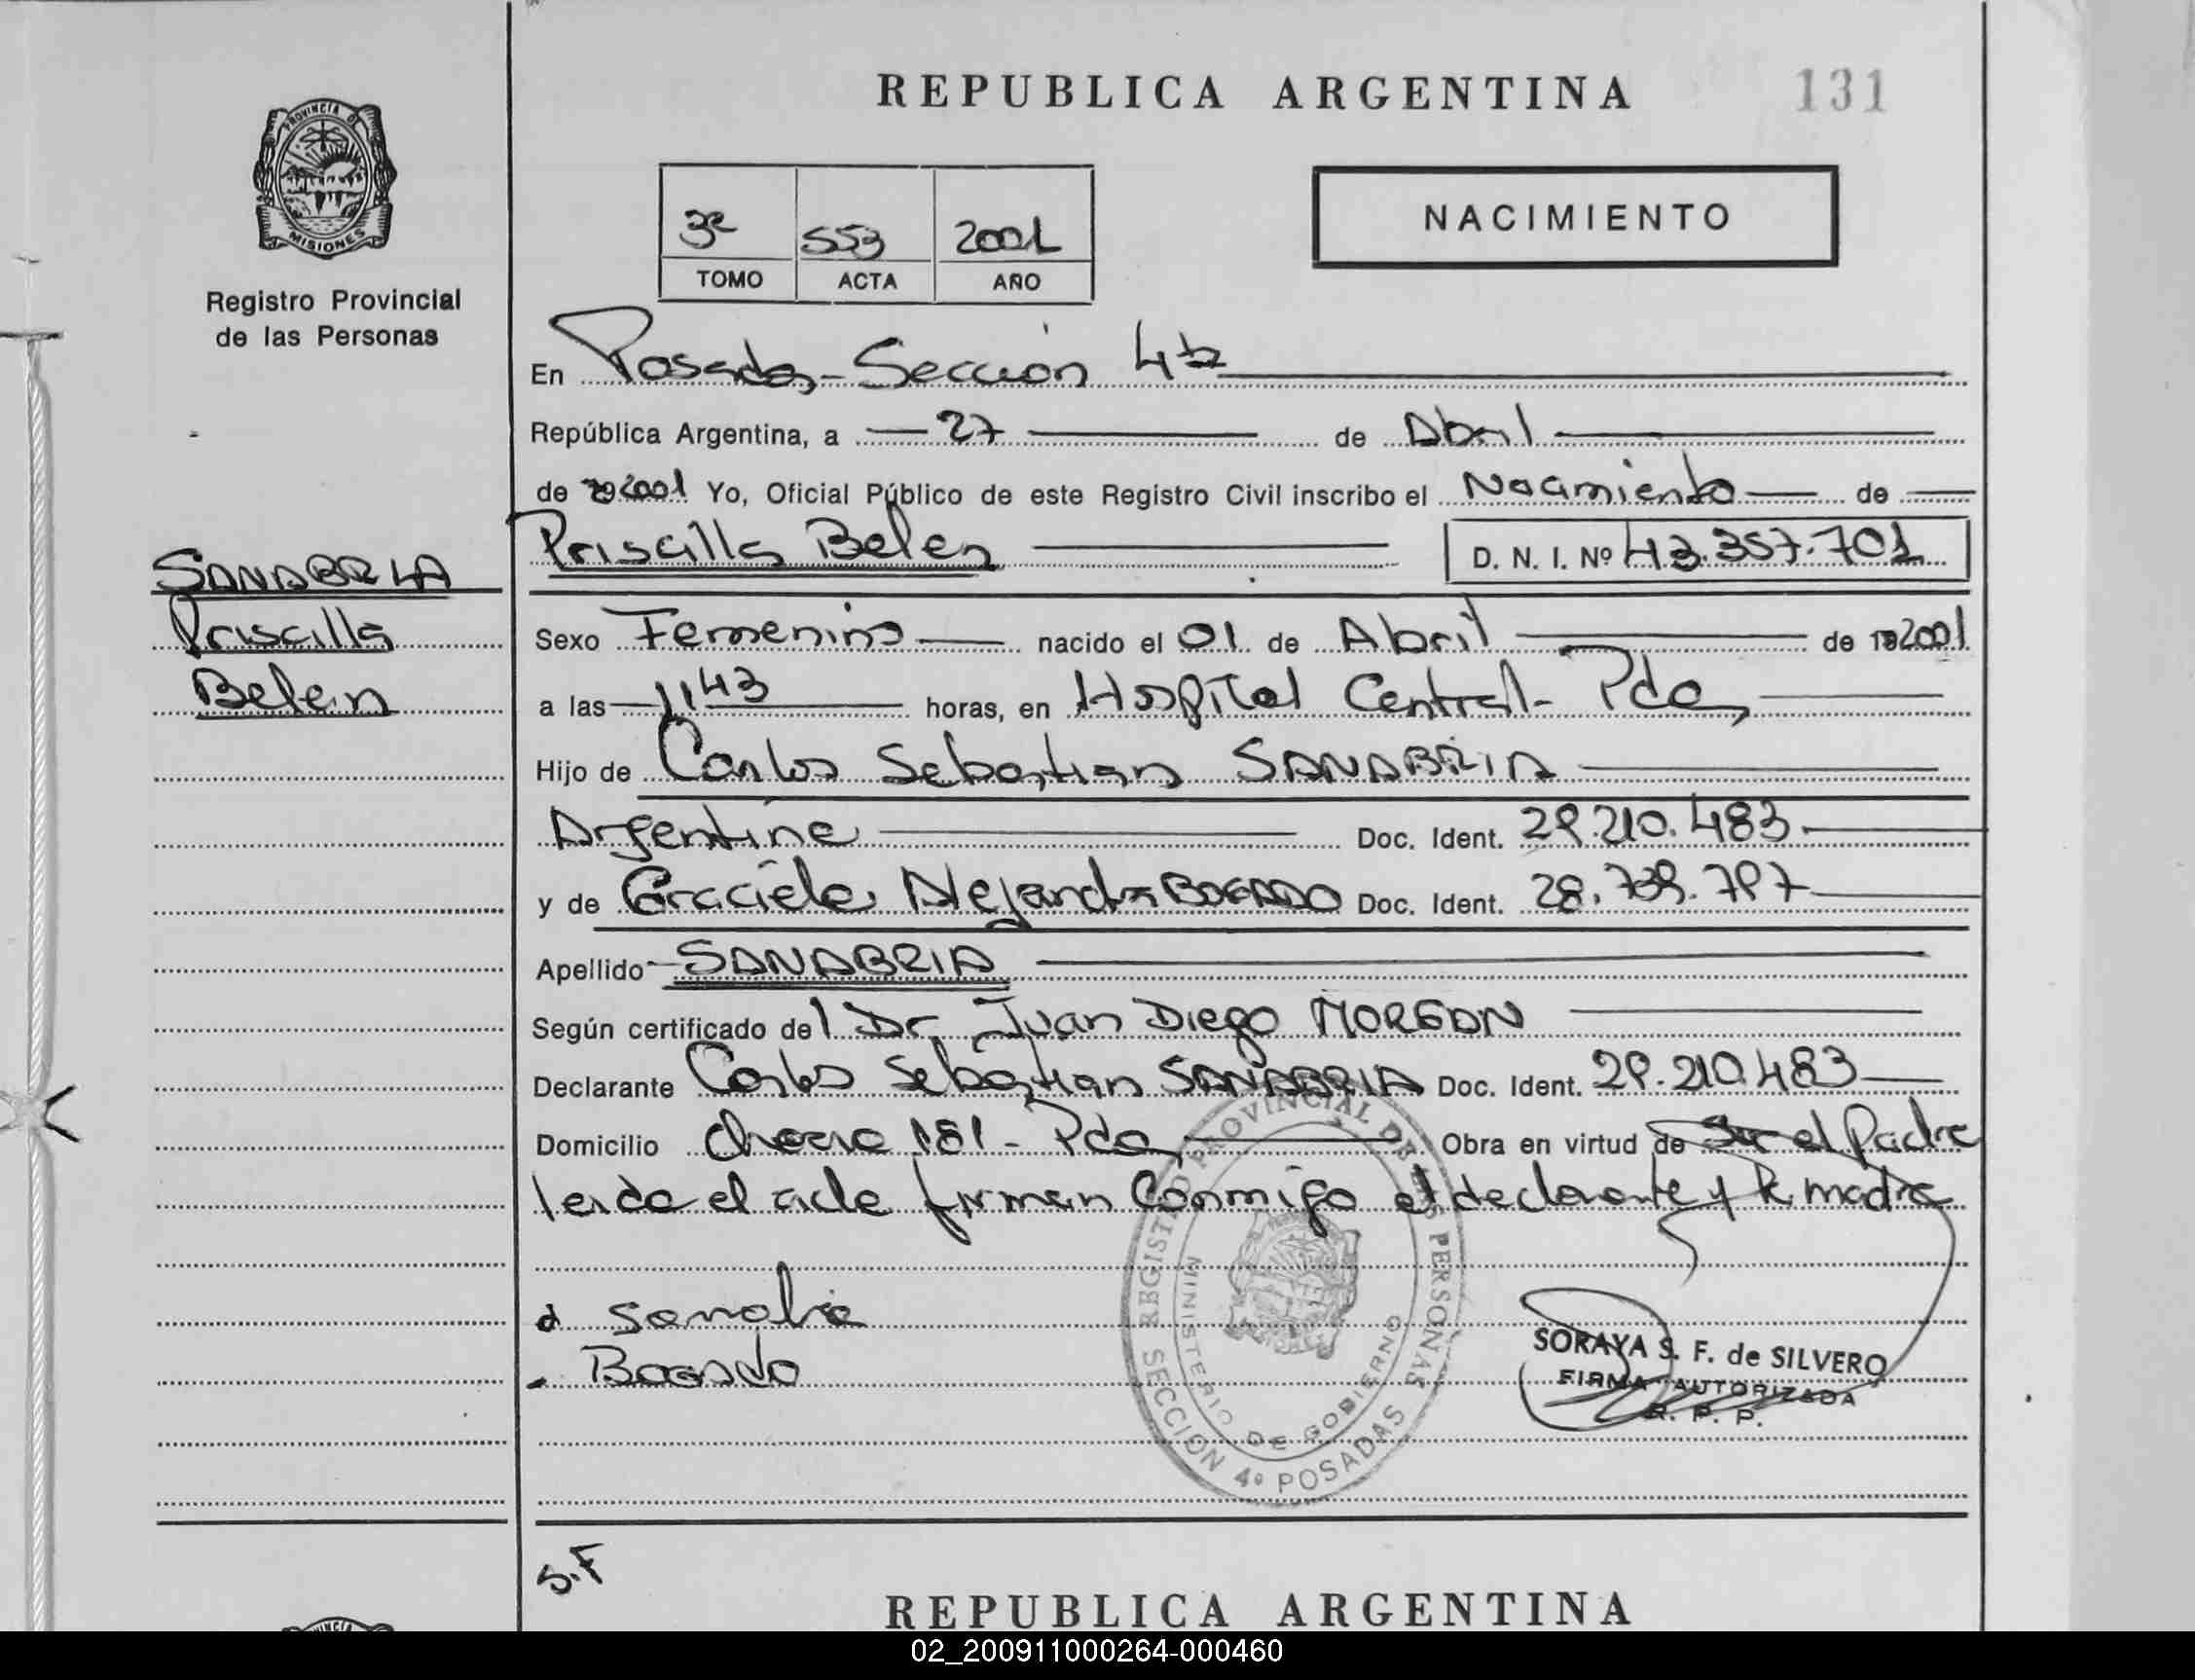 REPUBLICA ARGENTINA 131
PROVINCIA DE
MISIONES
Registro Provincial
de las Personas
3º 553 2001
TOMO ACTA AÑO
NACIMIENTO
En Posadas - Sección 4ta
República Argentina, a 27 de Abril
de 2001 Yo, Oficial Público de este Registro Civil inscribo el Nacimiento de
Priscilla Belen D. N. I. Nº 43.357.701
SANABRIA
Priscilla
Belen
Sexo Femenino nacido el 01 de Abril de 2001
a las 11 43 horas, en Hospital Central - Pdas
Hijo de Carlos Sebastian SANABRIA
Argentina Doc. Ident. 29.210.483
y de Graciela Alejandra BOGADO Doc. Ident. 28.739.797
Apellido SANABRIA
Según certificado del Dr. Juan Diego MORGAN
Declarante Carlos Sebastian SANABRIA Doc. Ident. 29.210.483
Domicilio 181 - Pdas Obra en virtud de Ser el Padre
leida el acta firman Conmigo el declarante y la madre
REGISTRO PROVINCIAL DE LAS PERSONAS
MINISTERIO DE GOBIERNO
SECCION 4º POSADAS
Bogado
SORAYA S. F. de SILVERO
FIRMA AUTORIZADA
R. P. P.
S.F
REPUBLICA ARGENTINA
02_200911000264-000460